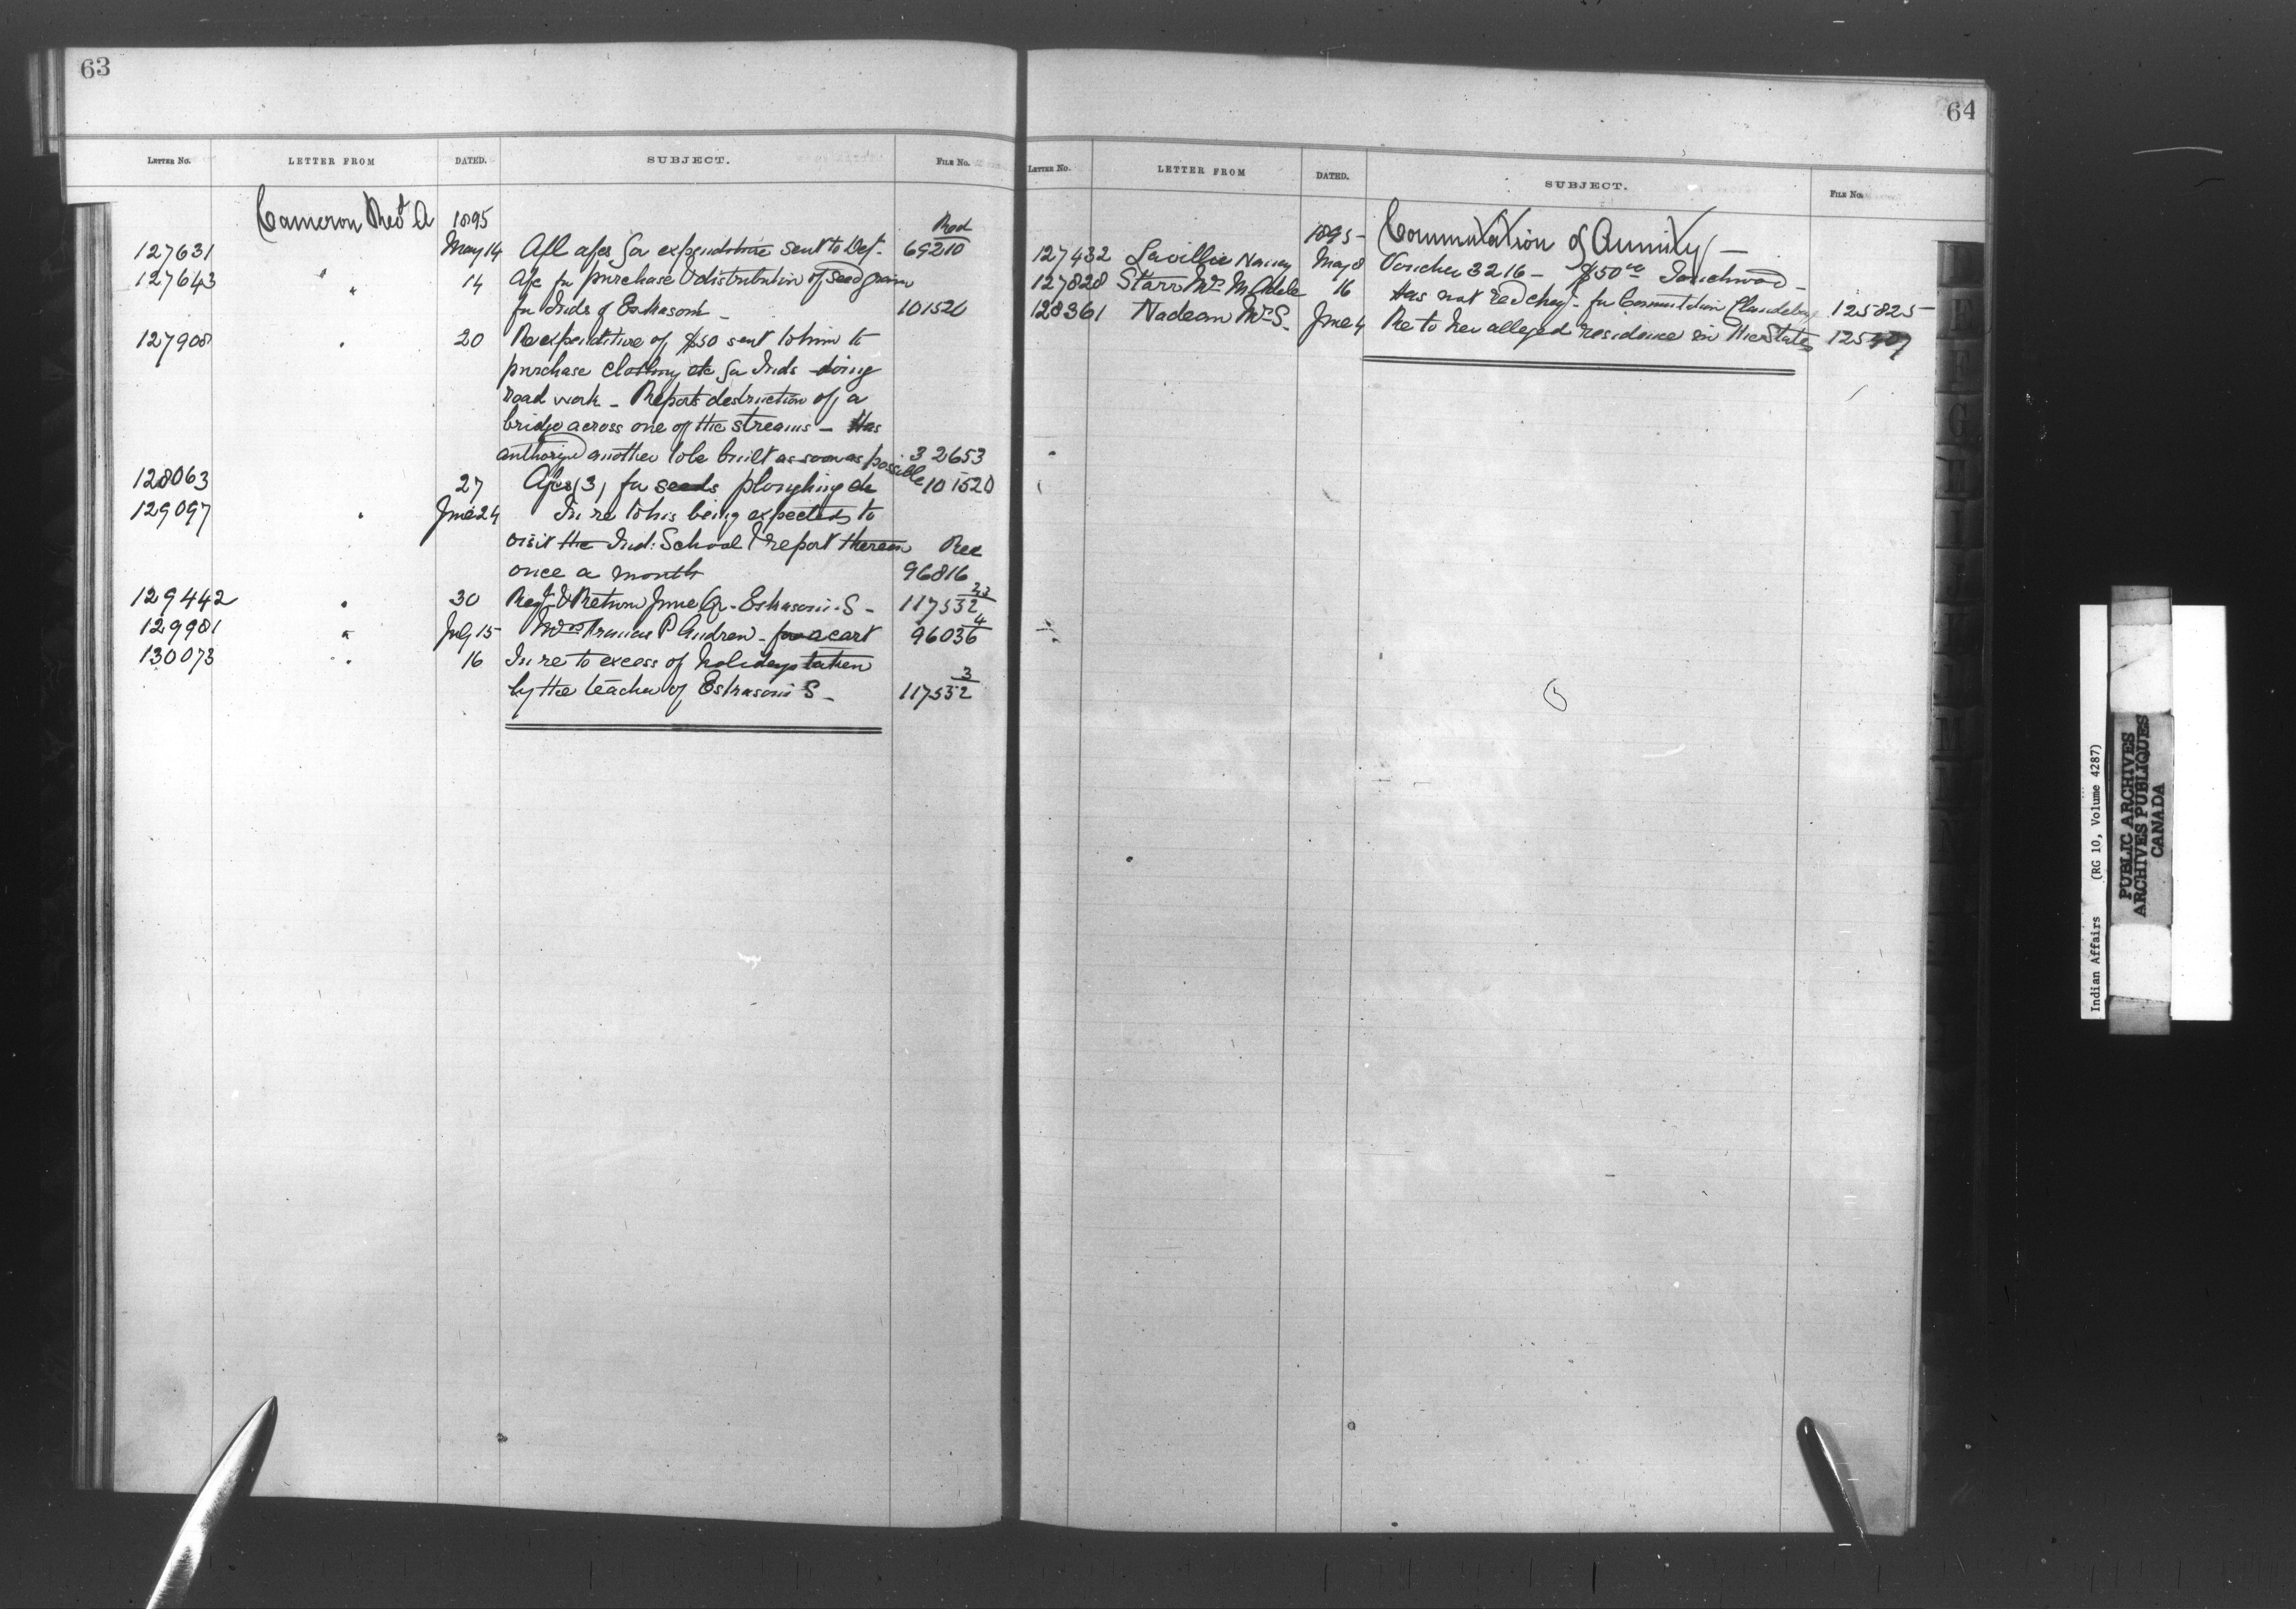 63
LETTER NO. LETTER FROM DATED. SUBJECT. FILE NO.
Cameron Revd A 1895 Red
127631 May 14 Afl afcs for expenditure sent to Dept. 69210
127643 " 14 Afc for purchase & distribution of seed grain
for Inds of Eskasoni - 101520
127908 " 20 Re expenditure of $50 sent to him to
purchase clothing etc for Inds doing
road work - Reports destruction of a
bridge across one of the streams - Has
authorized another to be built as soon as possible 32653
128063 27 Afcs (3) for seeds ploughing etc 101520
129097 " June 24 In re to his being expected to
visit the Ind: School & report thereon Red
once a month 96816
129442 " 30 Regt & Return June Qr. Eskasoni S - 117532
129981 " July 15 Francis P Andrew - for a cart 96036 4
130073 " 16 In re to excess of holidays taken
by the teacher of Eskasoni S - 117532 3
64
LETTER NO. LETTER FROM DATED. SUBJECT. FILE NO.
1895 - Commutation of Annuity -
127432 Laville Nancy May 8 Voucher 3216 - $50 00 -
127828 Starr Mrs M Adele 16 Has not recd cheq. for Commutation 125825
128361 Nadeau Mrs S. June 4 Re to her alleged residence in the States
Indian Affairs (RG 10, Volume 4287)
PUBLIC ARCHIVES
ARCHIVES PUBLIQUES
CANADA